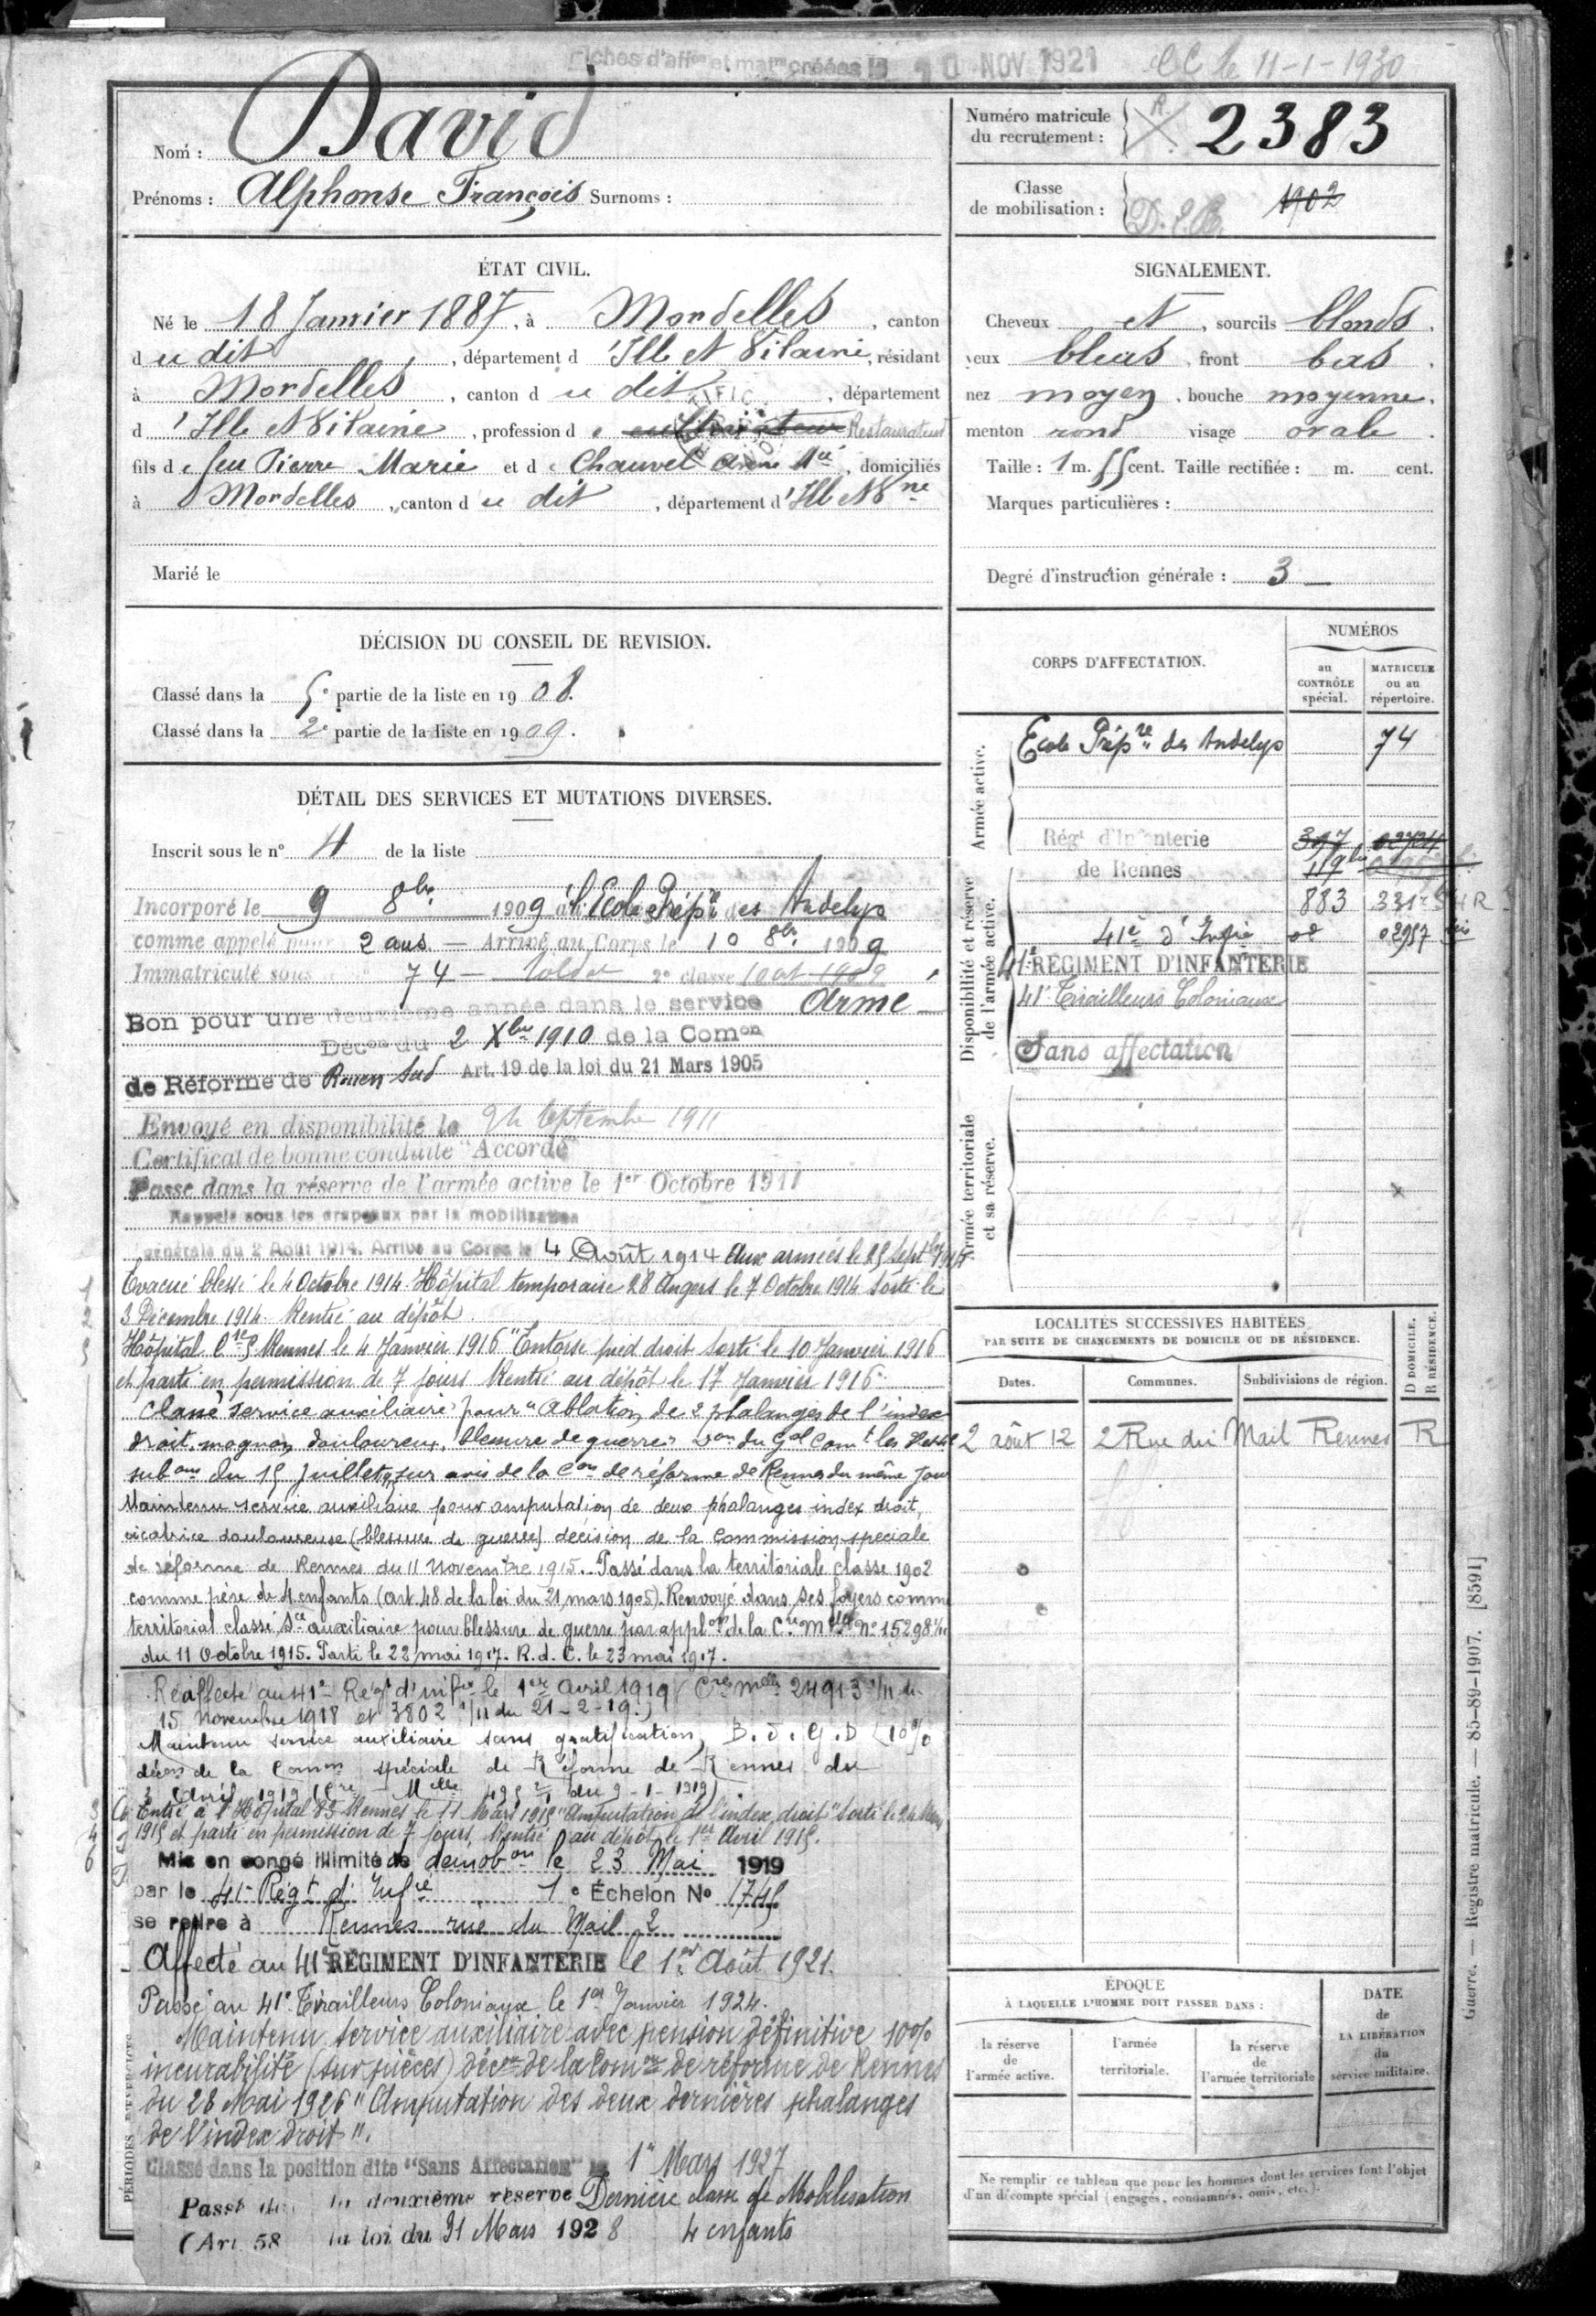 Fiches d'affon et matle créées le 10 NOV 1921 CC le 11-1-1930
Nom : David
Prénoms : Alphonse François Surnoms :
Numéro matricule du recrutement : R 2383
Classe de mobilisation : 1902
ÉTAT CIVIL.
Né le 18 Janvier 1887, à Mordelles, canton
du dit, département d'Ille et Vilaine, résidant
à Mordelles, canton du dit, département
d'Ille et Vilaine, profession de cultivateur Restaurateur
fils de feu Pierre Marie et de Chauvel Anne Mie, domiciliés
à Mordelles, canton du dit, département d'Ille et Vne
Marié le
SIGNALEMENT.
Cheveux et, sourcils blonds.
yeux bleus, front bas.
nez moyen, bouche moyenne.
menton rond visage ovale.
Taille : 1 m. 55 cent. Taille rectifiée : m. cent.
Marques particulières :
Degré d'instruction générale : 3
DÉCISION DU CONSEIL DE REVISION.
Classé dans la 5e partie de la liste en 1908.
Classé dans la 2e partie de la liste en 1909.
DÉTAIL DES SERVICES ET MUTATIONS DIVERSES.
Inscrit sous le n° 4 de la liste
Incorporé le 9 8bre 1909 à l'Ecole Prépre des Andelys
comme appelé pour 2 ans. — Arrivé au Corps le 10 8bre 1909
Immatriculé sous le n° 74 — Soldat 2e classe 10 oct 1909
Bon pour une deuxième année dans le service Armé
Décon du 2 Xbre 1910 de la Comon
de Réforme de Rouen Sud Art. 19 de la loi du 21 Mars 1905
Envoyé en disponibilité le 24 Septembre 1911
Certificat de bonne conduite "Accordé"
Passé dans la réserve de l'armée active le 1er Octobre 1911
Rappelé sous les drapeaux par la mobilisation
générale du 2 Août 1914. Arrivé au Corps le 4 Août 1914 Aux armées le 25 Septbre 1914
Evacué blessé le 4 Octobre 1914 Hôpital temporaire 28 Angers le 7 Octobre 1914 Sorti le
3 Décembre 1914 Rentré au dépôt.
Hôpital Cre 5 Rennes le 4 Janvier 1916 "Entorse pied droit" Sorti le 10 Janvier 1916
et parti en permission de 7 jours Rentré au dépôt le 17 Janvier 1916
Classé service auxiliaire pour "Ablation de 2 phalanges de l'index
droit, moignon douloureux, blessure de guerre" Don du Gal Comt les
subons du 15 Juillet, sur avis de la Con de réforme de Rennes du même jour
Maintenu service auxiliaire pour amputation de deux phalanges index droit,
cicatrice douloureuse (blessure de guerre) décision de la Commission spéciale
de réforme de Rennes du 11 Novembre 1915. Passé dans la territoriale classe 1902
comme père de 4 enfants (art. 48 de la loi du 21 mars 1905). Renvoyé dans ses foyers comme
territorial classé Sce auxiliaire pour blessure de guerre par applon de la Cre Melle n° 15298 1/11
du 11 Octobre 1915. Parti le 22 mai 1917. R. d. C. le 23 mai 1917.
Réaffecté au 41e Régt d'infie le 1er Avril 1919 (Cres Melles 24913 1/11 du
15 Novembre 1918 et 3802 1/11 du 21-2-19.)
Maintenu service auxiliaire sans gratification, B. d. G. D (10%
décon de la Comon spéciale de Réforme de Rennes du
2 Avril 1919 (Cre Melle 495 du 9-1-1919)
Entré à l'Hôpital 83 Rennes le 11 Mars 1915 "Amputation de l'index droit" Sorti le 24 Mars
1915 et parti en permission de 7 jours, Rentré au dépôt le 1er Avril 1915.
Mis en congé illimité de démobon le 23 Mai 1919
par le 41e Régt d'Infie 1e Échelon No 1745
se retire à Rennes rue du Mail 2
Affecté au 41e RÉGIMENT D'INFANTERIE le 1er Août 1921.
Passé au 41e Tirailleurs Coloniaux le 1er Janvier 1924.
Maintenu service auxiliaire avec pension définitive 10%
incurabilité (sur pièces) décon de la Comon de réforme de Rennes
du 28 Mai 1926 "Amputation des deux dernières phalanges
de l'index droit".
Classé dans la position dite "Sans Affectation" le 1er Mars 1927
Passé dans la deuxième réserve Dernière classe de Mobilisation
(Art 58 la loi du 31 Mars 1928 4 enfants
CORPS D'AFFECTATION.
NUMÉROS
au CONTRÔLE spécial.
MATRICULE ou au répertoire.
Armée active.
Ecole Prépre des Andelys 74
Disponibilité et réserve de l'armée active.
Régt d'Infanterie 397 02724
de Rennes 119bis
883
41e d'Infie 02957 bis
41e RÉGIMENT D'INFANTERIE
41e Tirailleurs Coloniaux
Sans affectation
Armée territoriale et sa réserve.
LOCALITÉS SUCCESSIVES HABITÉES
PAR SUITE DE CHANGEMENTS DE DOMICILE OU DE RÉSIDENCE.
Dates. Communes. Subdivisions de région. D DOMICILE. R RÉSIDENCE.
2 août 12 2 Rue du Mail Rennes R
ÉPOQUE
À LAQUELLE L'HOMME DOIT PASSER DANS :
la réserve de l'armée active.
l'armée territoriale.
la réserve de l'armée territoriale
DATE de LA LIBÉRATION du service militaire.
Ne remplir ce tableau que pour les hommes dont les services font l'objet
d'un décompte spécial (engagés, condamnés, omis, etc.).
Guerre. — Registre matricule. — 85-89-1907. [8591]